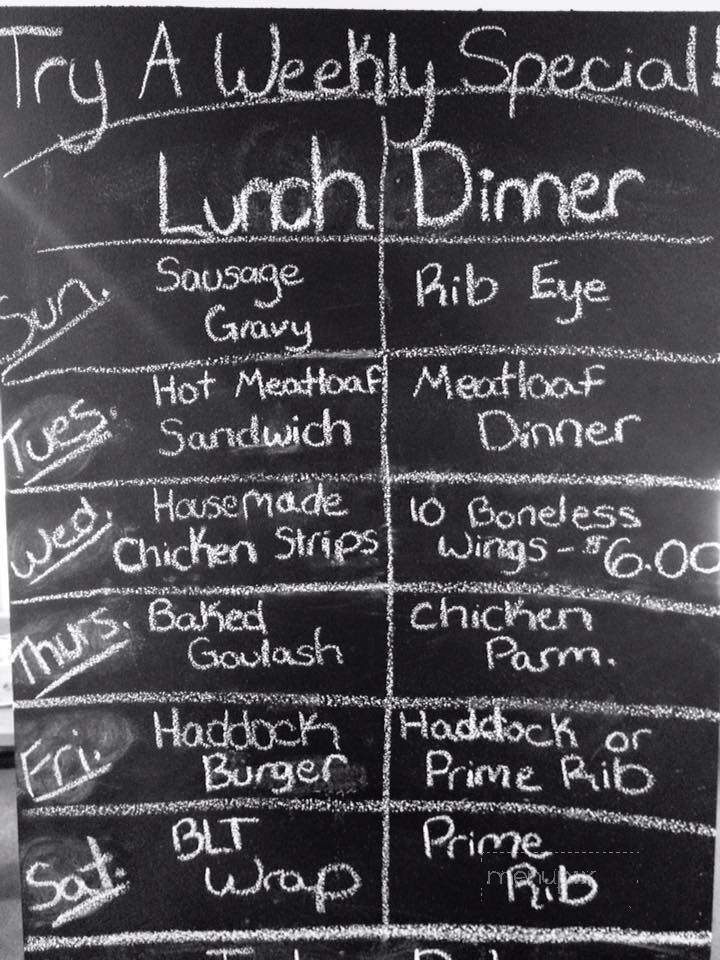 Try A Weekly Special!
Lunch Dinner
Sun. Sausage Gravy Rib Eye
Tues. Hot Meatloaf Sandwich Meatloaf Dinner
Wed. Housemade Chicken Strips 10 Boneless Wings - $6.00
Thurs. Baked Goulash Chicken Parm.
Fri. Haddock Burger Haddock or Prime Rib
Sat. BLT Wrap Prime Rib